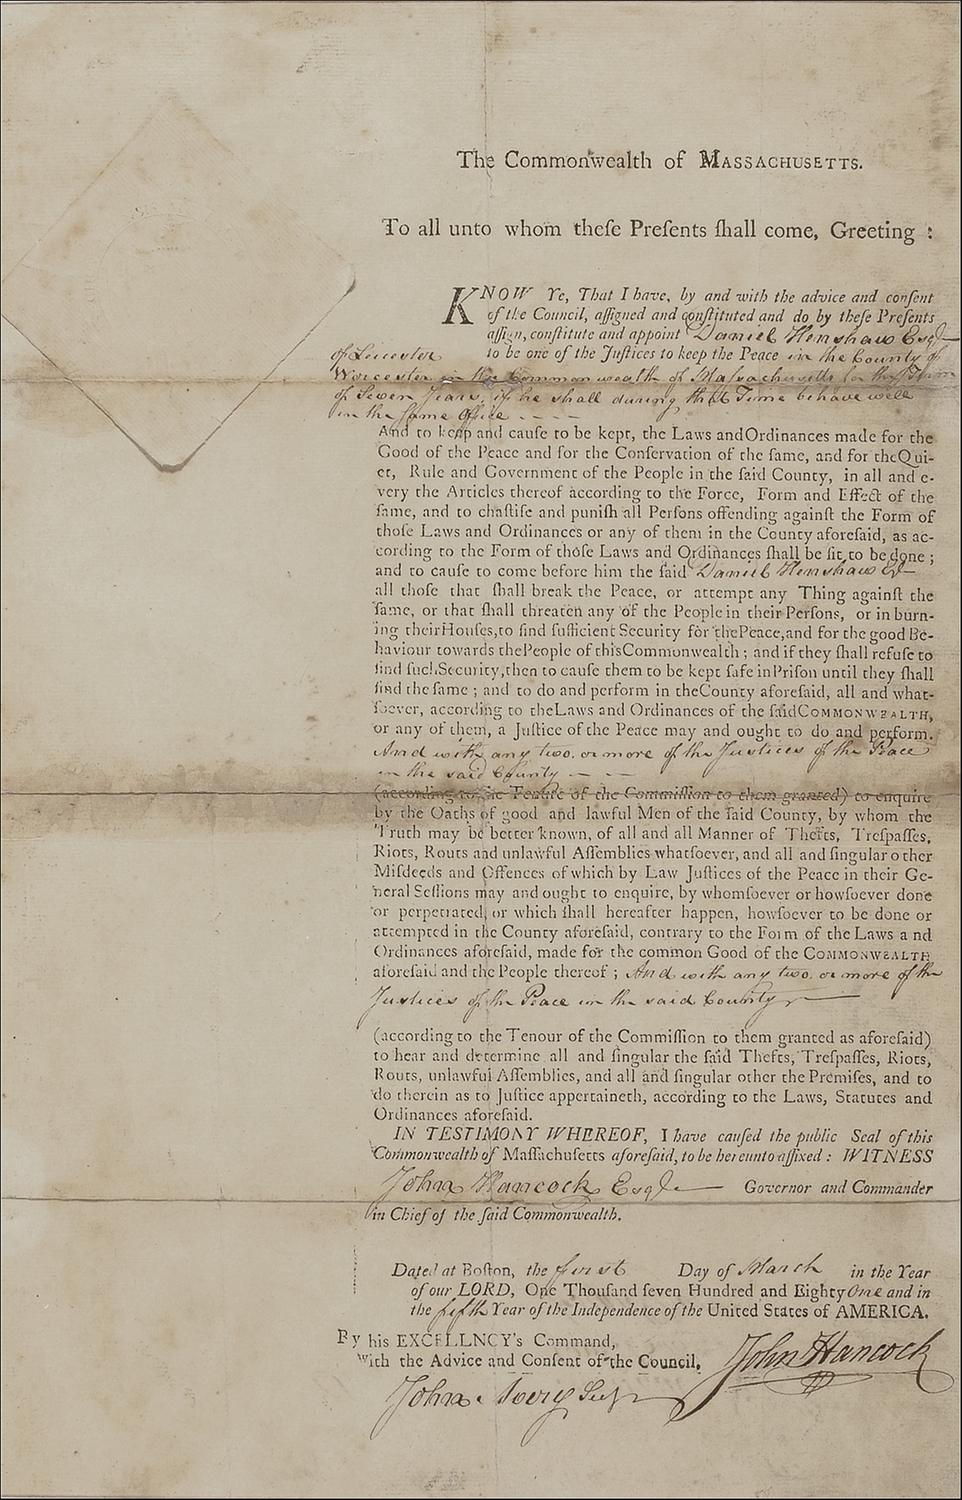 The Commonwealth of MASSACHUSETTS.
To all unto whom theſe Preſents ſhall come, Greeting :
KNOW Ye, That I have, by and with the advice and conſent
of the Council, aſſigned and conſtituted and do by theſe Preſents
aſſign, conſtitute and appoint Daniel Henshaw Esqr
of Leicester to be one of the Juſtices to keep the Peace in the County of
Worcester in the Commonwealth of Massachusetts for the Term
of Seven Years, if he shall during that Time behave well
in the same Office - - - -
And to keep and cauſe to be kept, the Laws and Ordinances made for the
Good of the Peace and for the Conſervation of the ſame, and for the Qui-
et, Rule and Government of the People in the ſaid County, in all and e-
very the Articles thereof according to the Force, Form and Effect of the
ſame, and to chaſtiſe and puniſh all Perſons offending againſt the Form of
thoſe Laws and Ordinances or any of them in the County aforeſaid, as ac-
cording to the Form of thoſe Laws and Ordinances ſhall be fit to be done ;
and to cauſe to come before him the ſaid Daniel Henshaw Esqr
all thoſe that ſhall break the Peace, or attempt any Thing againſt the
ſame, or that ſhall threaten any of the People in their Perſons, or in burn-
ing their Houſes, to find ſufficient Security for the Peace, and for the good Be-
haviour towards the People of this Commonwealth ; and if they ſhall refuſe to
find ſuch Security, then to cauſe them to be kept ſafe in Priſon until they ſhall
find the ſame ; and to do and perform in the County aforeſaid, all and what-
ſoever, according to the Laws and Ordinances of the ſaid COMMONWEALTH,
or any of them, a Juſtice of the Peace may and ought to do and perform.
And with any two or more of the Justices of the Peace
in the said County - - -
(according to the Tenure of the Commiſſion to them granted) to enquire
by the Oaths of good and lawful Men of the ſaid County, by whom the
Truth may be better known, of all and all Manner of Thefts, Treſpaſſes,
Riots, Routs and unlawful Aſſemblies whatſoever, and all and ſingular other
Miſdeeds and Offences of which by Law Juſtices of the Peace in their Ge-
neral Seſſions may and ought to enquire, by whomſoever or howſoever done
or perpetrated, or which ſhall hereafter happen, howſoever to be done or
attempted in the County aforeſaid, contrary to the Form of the Laws and
Ordinances aforeſaid, made for the common Good of the COMMONWEALTH
aforeſaid and the People thereof ; And with any two or more of the
Justices of the Peace in the said County
(according to the Tenour of the Commiſſion to them granted as aforeſaid)
to hear and determine all and ſingular the ſaid Thefts, Treſpaſſes, Riots,
Routs, unlawful Aſſemblies, and all and ſingular other the Premiſes, and to
do therein as to Juſtice appertaineth, according to the Laws, Statutes and
Ordinances aforeſaid.
IN TESTIMONY WHEREOF, I have cauſed the public Seal of this
Commonwealth of Maſſachuſetts aforeſaid, to be hereunto affixed : WITNESS
John Hancock Esqr Governor and Commander
in Chief of the ſaid Commonwealth.
Dated at Boſton, the first Day of March in the Year
of our LORD, One Thouſand ſeven Hundred and Eighty One and in
the fifth Year of the Independence of the United States of AMERICA.
By his EXCELLNCY's Command,
With the Advice and Conſent of the Council,
John Hancock
John Avery Secy